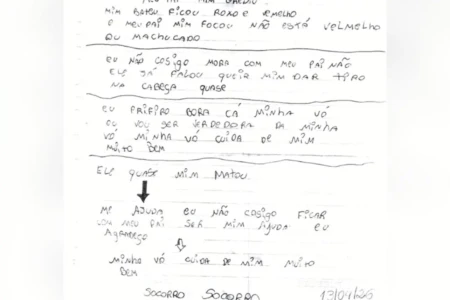 MIM BATEU FICOU ROXO E EMELHO
E MEU PAI MIM FOCOU NÃO ESTÁ VELMELHO
OU MACHUCADO
EU NÃO COSIGO MORA COM MEU PAI NÃO
ELE JÁ FALOU QUEIA MIM DAR TIRO
NA CABEÇA QUASE
EU PRIFIRO BORA CÁ MINHA VÓ
EU VOU SER DA MINHA
VÓ MINHA VÓ CUIDA DE MIM
MUITO BEM
ELE QUASE MIM MATOU
ME AJUDA EU NÃO COSIGO FICAR
COM MEU PAI SER MIM AJUDA EU
AGRADEÇO
MINHA VÓ CUIDA DE MIM MUITO
BEM
SOCORRO SOCORRO 13/04/26